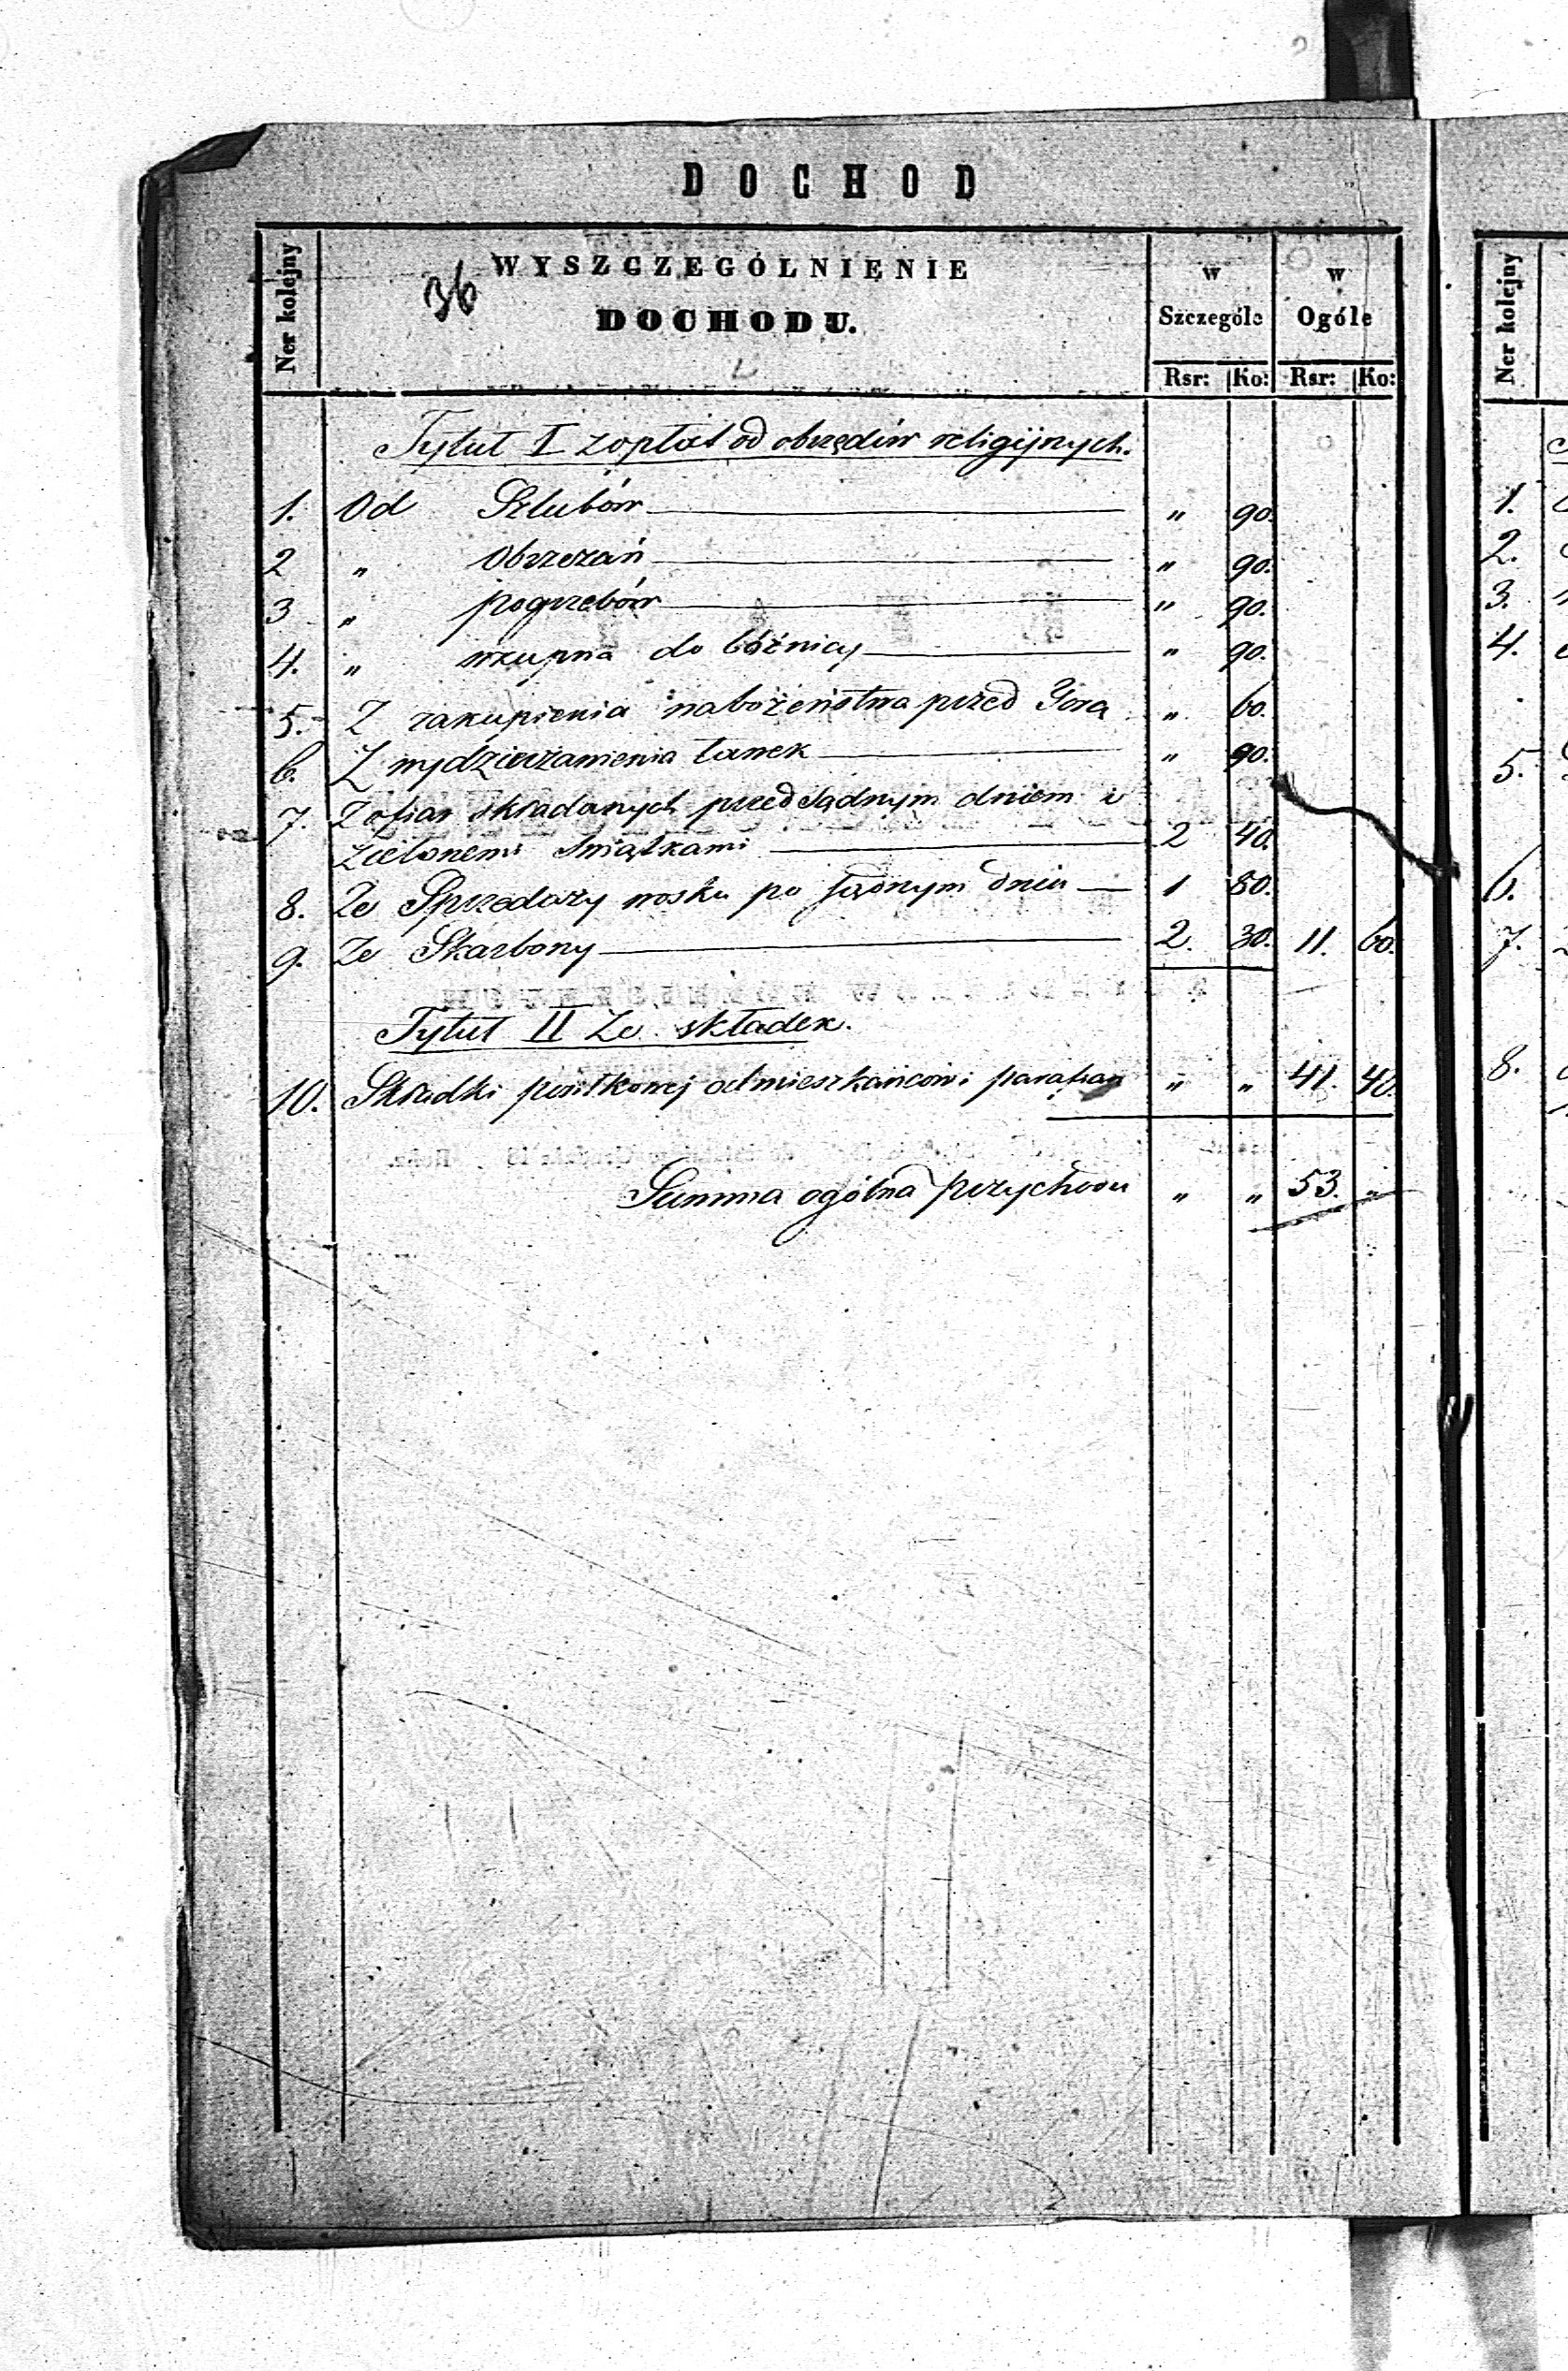 DOCHOD
Ner kolejny
WYSZCZEGÓLNIENIE
36
DOCHODU.
w Szczególe
w Ogóle
Rsr: Ko: Rsr: Ko:
Tytuł I z opłat od obrzędów religijnych.
1. Od Szlubów " 90.
2 " Obrzezań " 90.
3 " pogrzebów " 90.
4. " wkupna do bóżnicy " 90.
5. Z zakupienia nabożeństwa przed " 60.
6. Z wydzierżawienia ławek " 90.
7. Z ofiar składanych przed Sądnym dniem i
Zielonemi Świątkami 2 40.
8. Ze Sprzedaży wosku po Sądnym dniu 1 80.
9. Ze Skarbony 2. 30. 11. 60.
Tytuł II Ze składek.
10. Składki od mieszkańców i parafian " " 41. 40.
Summa ogólna przychodu " " 53. "
Ner kolejny
1.
2.
3.
4.
5.
6.
7.
8.